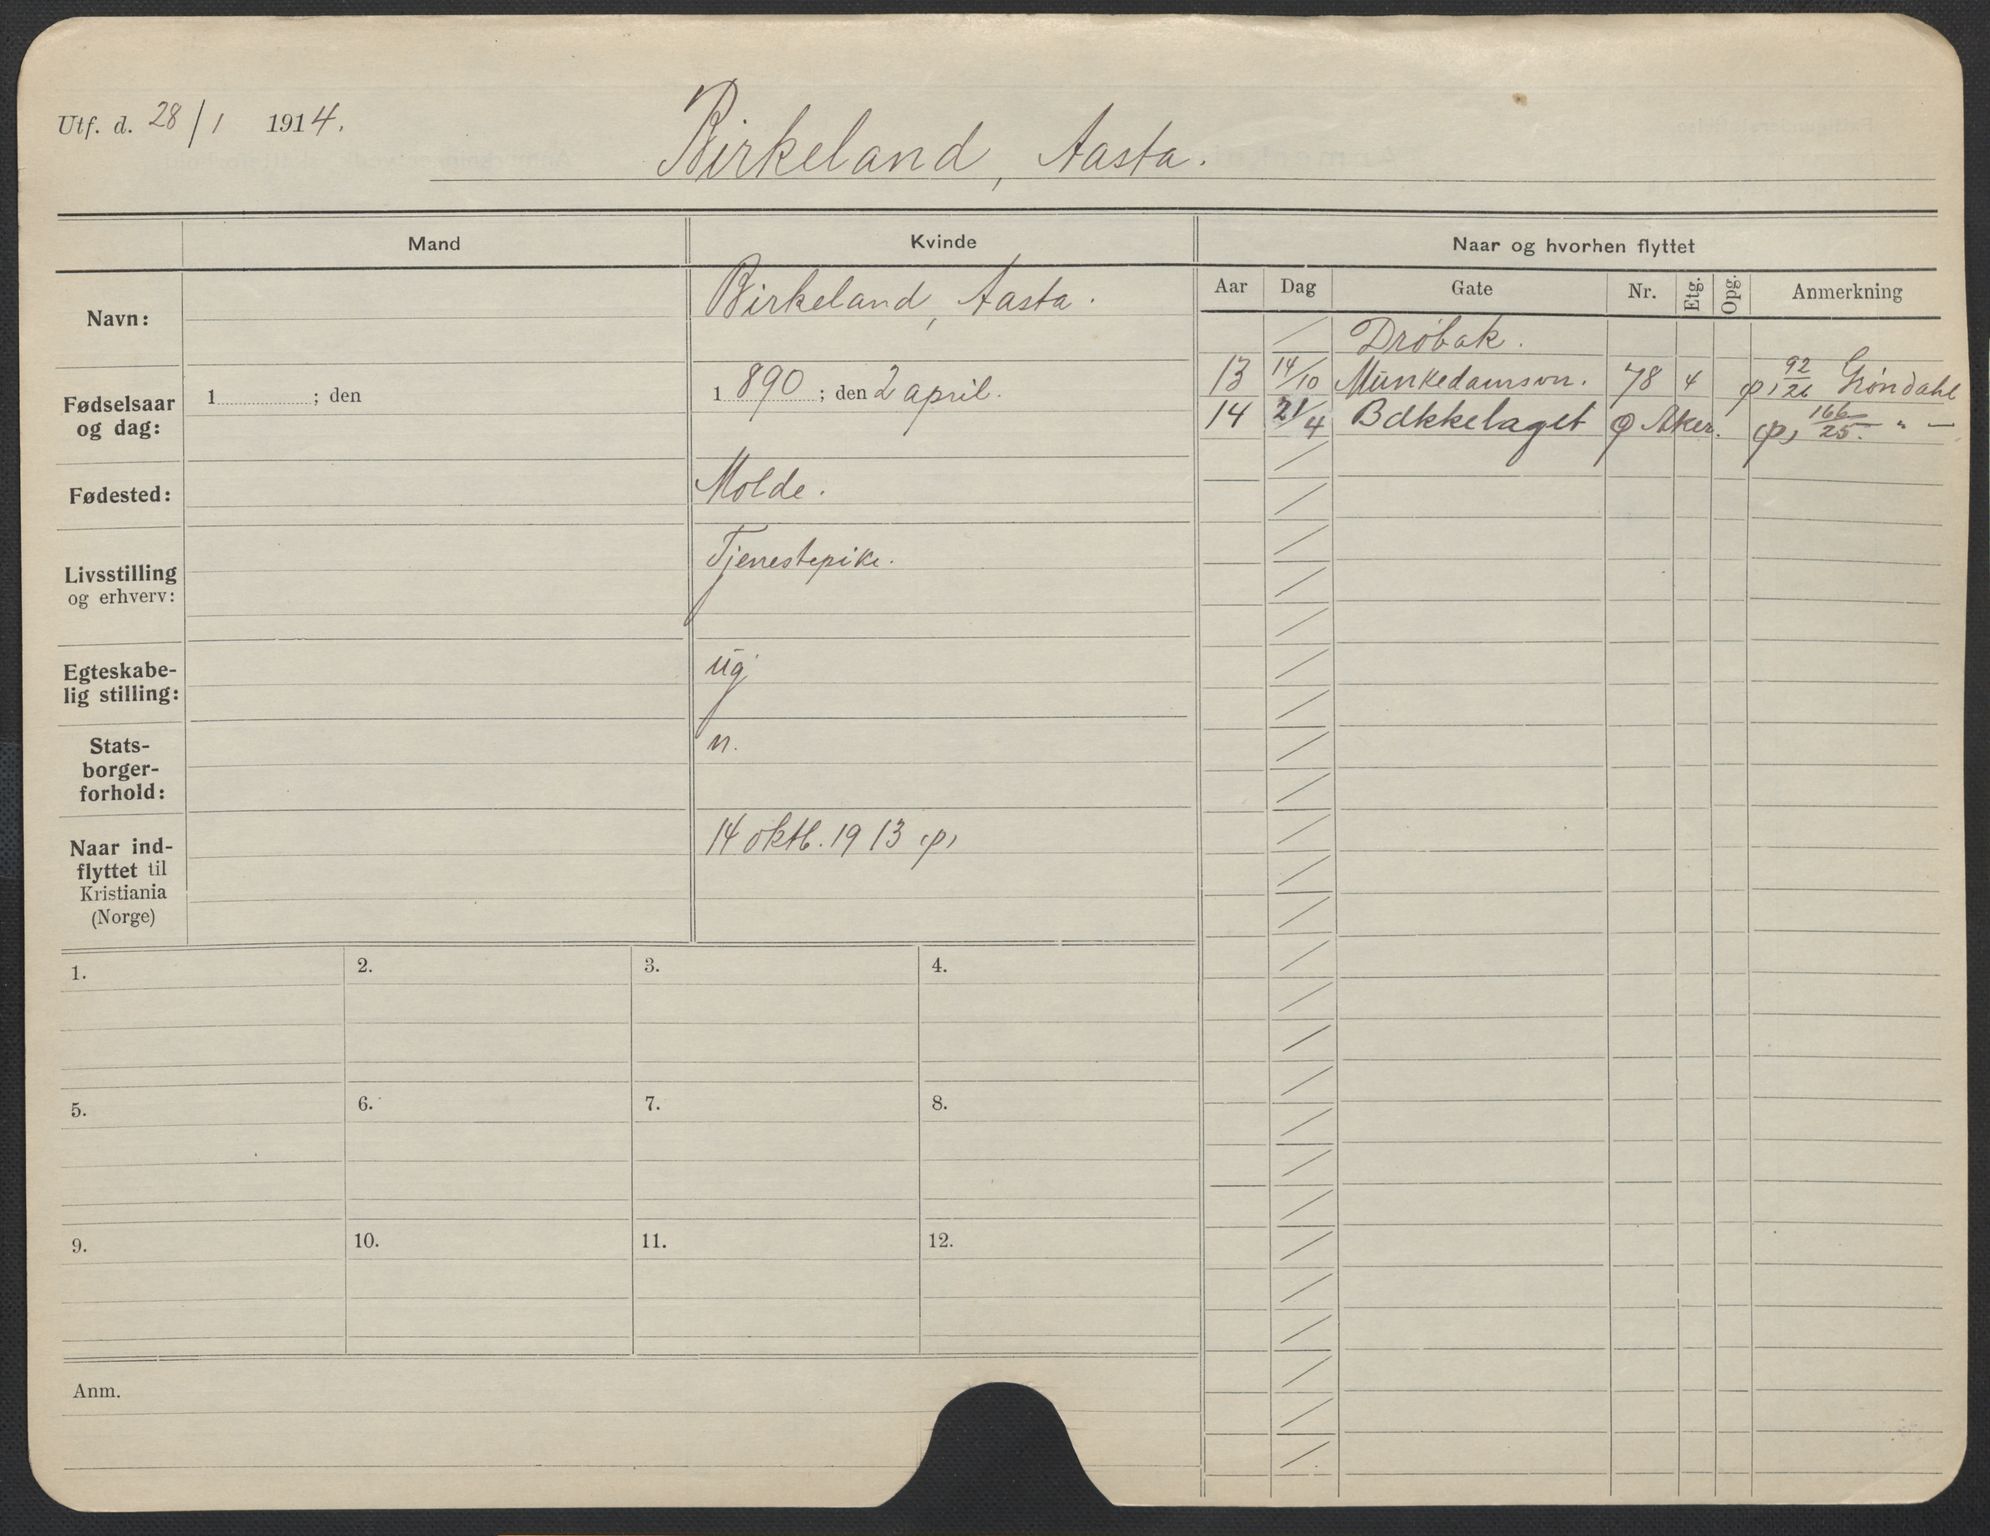 Utf. d. 28/1 1914.
Birkeland, Aasta.
Mand
Kvinde
Naar og hvorhen flyttet
Aar Dag Gate Nr. Etg. Opg. Anmerkning
Navn:
Birkeland, Aasta.
Drøbak.
13 14/10 Munkedamsvn. 78 4 92/26 Grøndahl
14 21/4 Bækkelaget Aker. 166/25. " —
Fødselsaar
og dag:
1 ; den
1 890 ; den 2 april.
Fødested:
Molde.
Livsstilling
og erhverv:
Tjenestepike.
Egteskabe-
lig stilling:
ug
Stats-
borger-
forhold:
n.
Naar ind-
flyttet til
Kristiania
(Norge)
14 oktb. 1913
1. 2. 3. 4.
5. 6. 7. 8.
9. 10. 11. 12.
Anm.